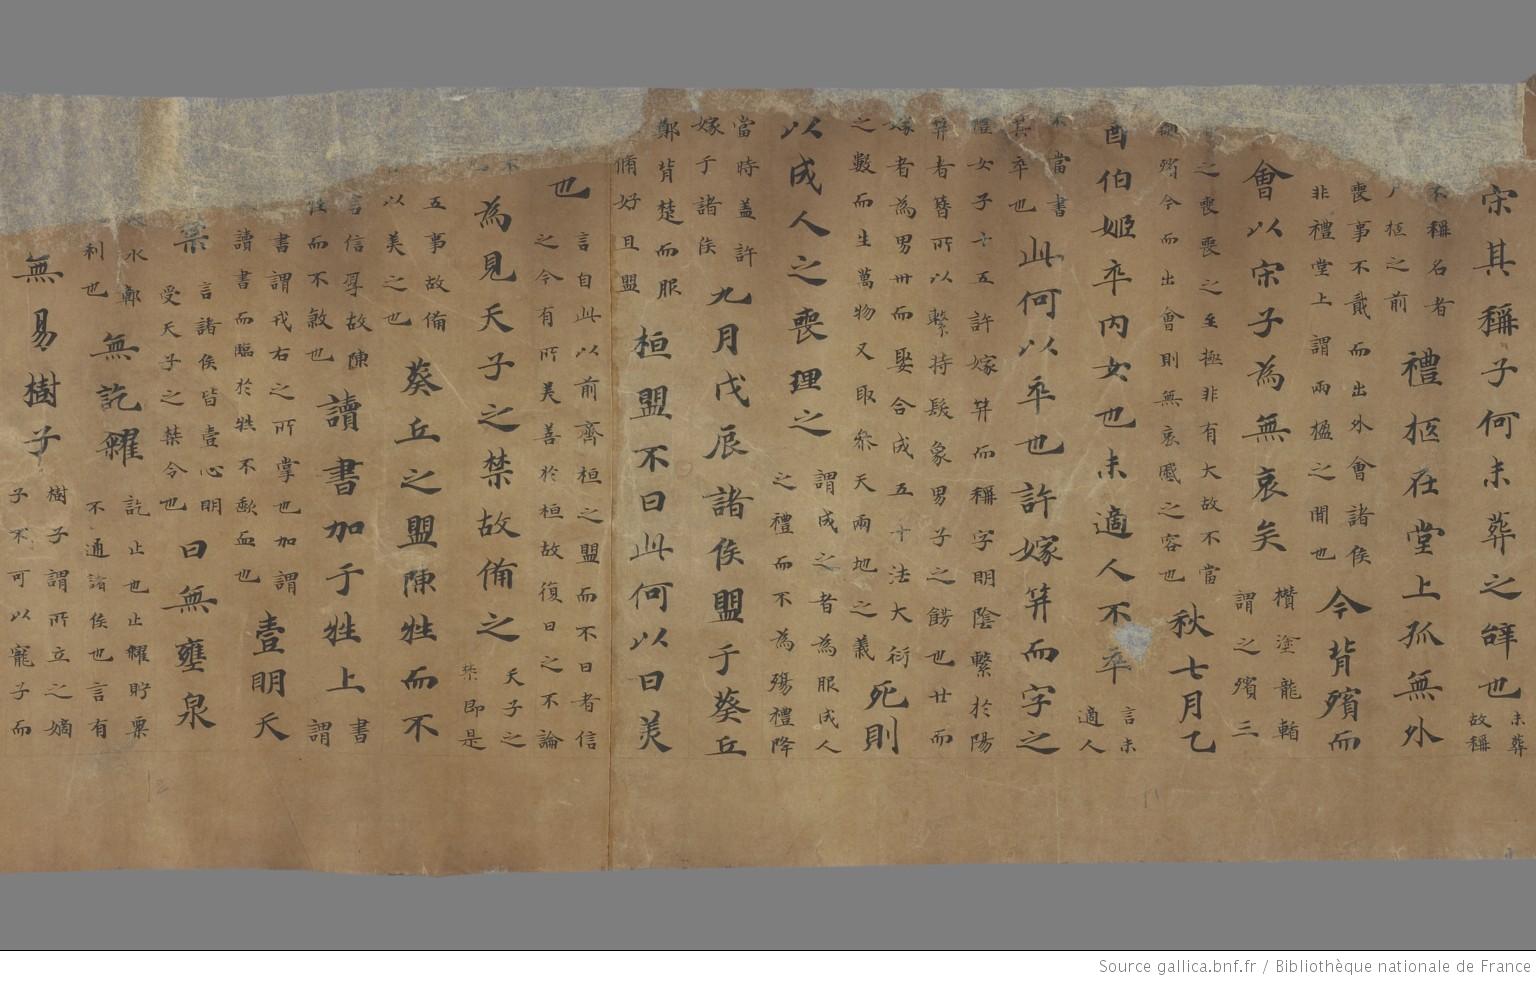 宋其稱子何未葬之辝也未葬故稱
不稱名者之前禮柩在堂上孤無外
喪事不貳而出外會諸侯非禮堂上謂兩楹之間也今背殯而
會以宋子為無哀矣欑塗龍輴謂之殯三
之喪喪之至極非有大故不當殯今而出會則無哀慼之容也秋七月乙
酉伯姬卒内女也未適人不卒言未適人
不當書其卒也此何以卒也許嫁笄而字之
女子十五許嫁笄而稱字明陰繫於陽
笄者簪所以繫持髮象男子之飾也廿而
嫁者為男卅而娶合成五十法大衍
之數而生萬物又取叅天兩地之義死則
以成人之喪理之謂成之者為服成人之禮而不為殤禮降
當時蓋許嫁于諸侯九月戊辰諸侯盟于葵丘
鄭背楚而服脩好且盟桓盟不日此何以日美
也言自此以前齊桓之盟而不日者信之今有所美善於桓故復日之不論
為見天子之禁故俻之天子之禁即是
五事故俻以美之也葵丘之盟陳牲而不
言信厚故陳牲而不煞也讀書加于牲上書謂
書謂我右之所掌也加謂讀書而臨於牲不歃血也壹明天
禁言諸侯皆壹心明受天子之禁令也曰無壅泉
水鄣利也無訖糴訖止也止糴貯粟不通諸侯也言有
無易樹子樹子謂所立之嫡子不可以寵子而